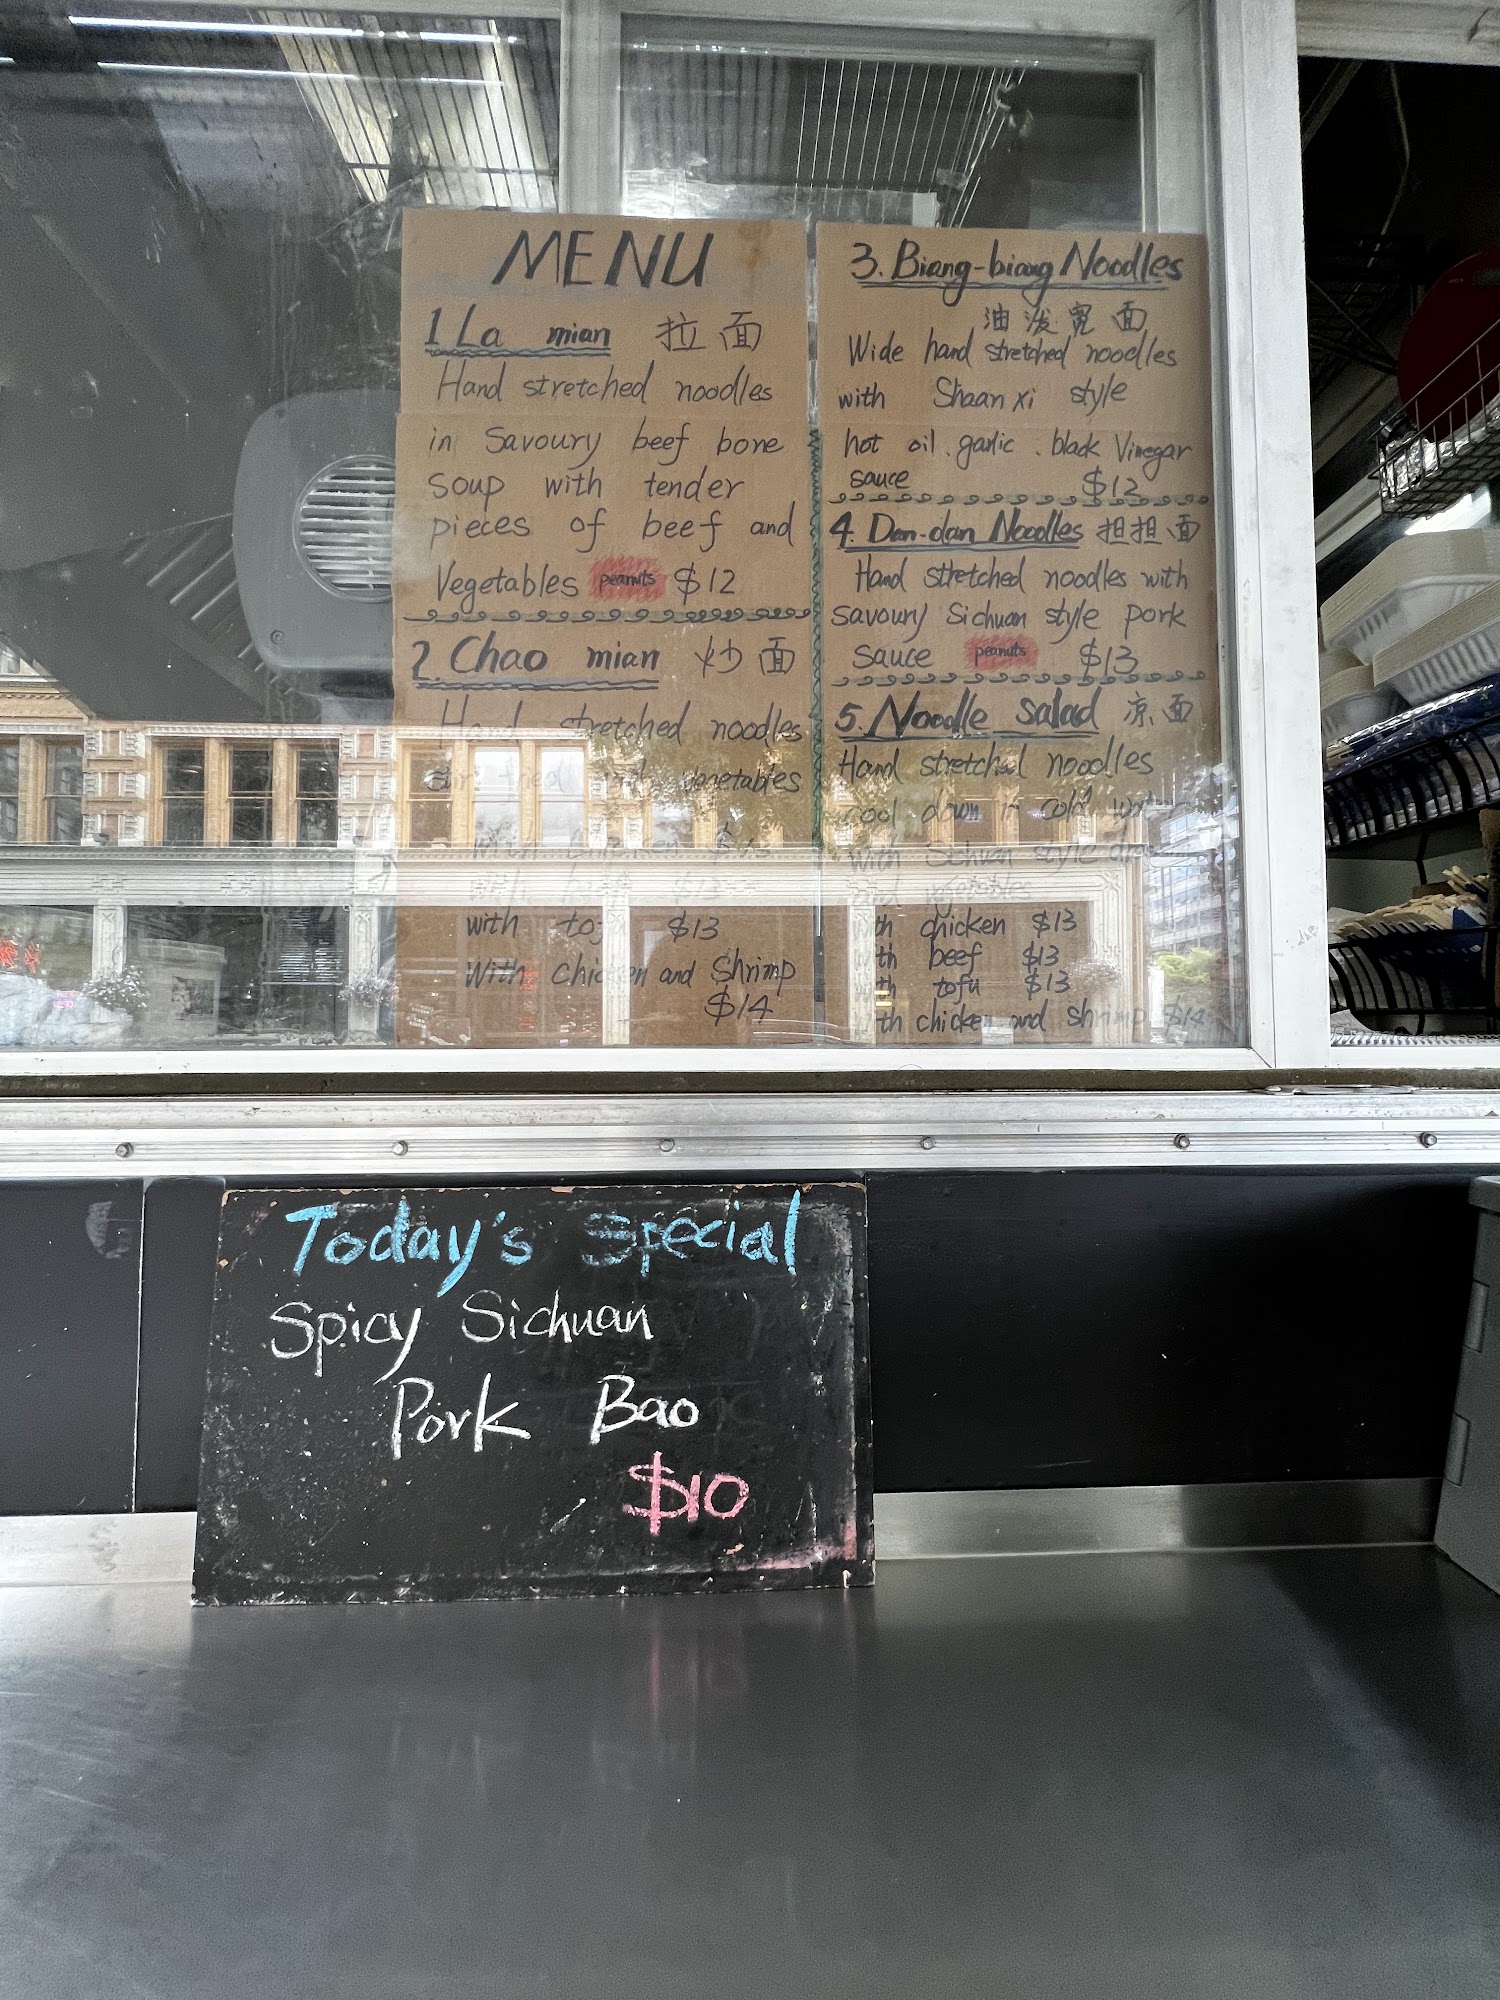 MENU
1 La mian 拉面
Hand stretched noodles
in Savoury beef bone
soup with tender
pieces of beef and
Vegetables peanuts $12
2. Chao mian 炒面
Hand stretched noodles
stir fried with vegetables
with chicken $13
with beef $13
with tofu $13
with chicken and shrimp
$14
3. Biang-biang Noodles
油泼宽面
Wide hand stretched noodles
with Shaan xi style
hot oil. garlic. black Vinegar
sauce $12
4. Dan-dan Noodles 担担面
Hand stretched noodles with
savoury Sichuan style pork
sauce peanuts $13
5. Noodle salad 凉面
Hand stretched noodles
cool down in cold water
with Sichuan style
and vegetables
with chicken $13
with beef $13
with tofu $13
with chicken and shrimp $14
Today's Special
Spicy Sichuan
Pork Bao
$10